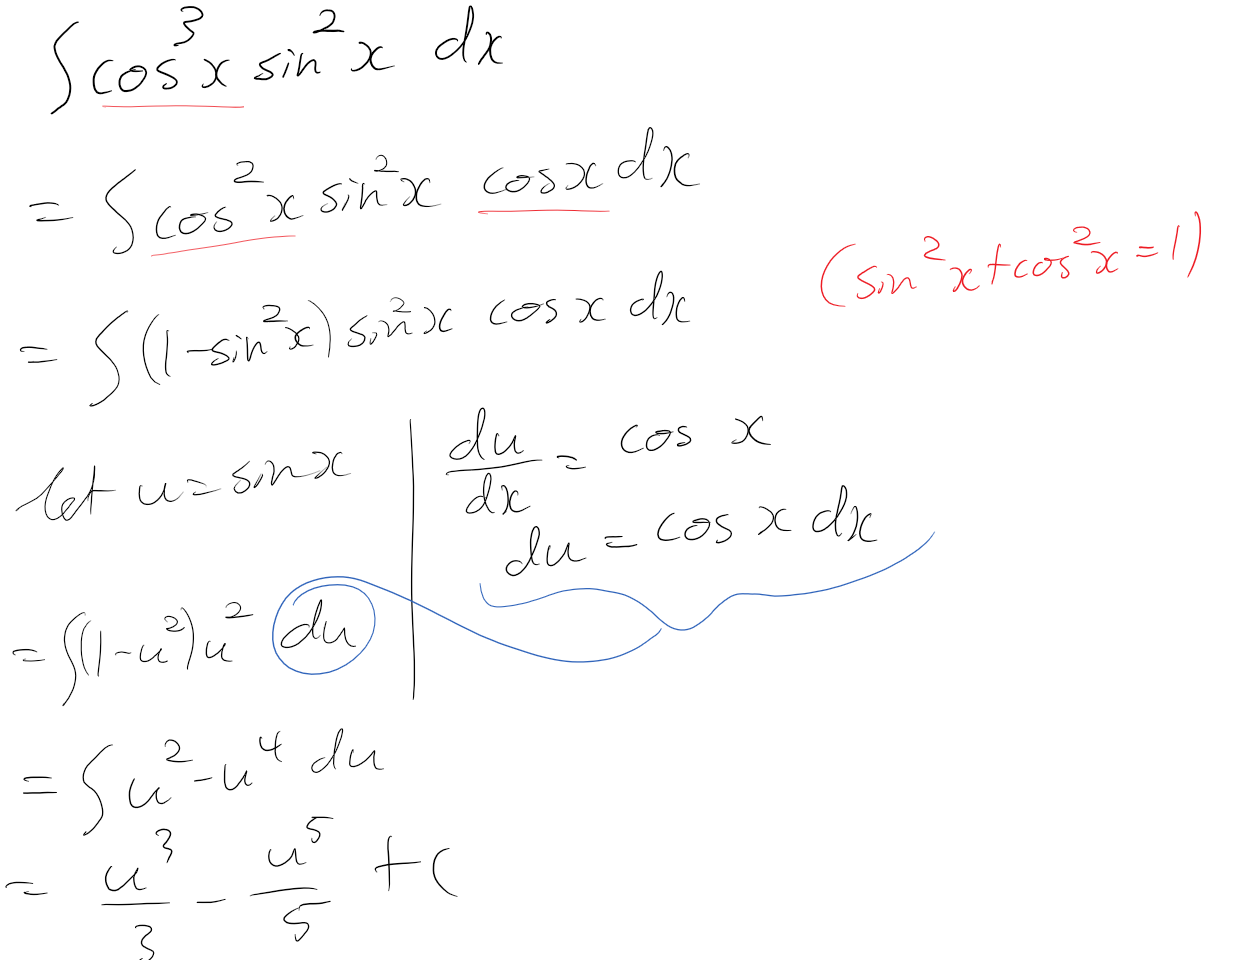 ∫ cos³x sin²x dx
= ∫ cos²x sin²x cosx dx
(sin²x + cos²x = 1)
= ∫ (1-sin²x) sin²x cosx dx
let u = sinx
du/dx = cos x
du = cos x dx
= ∫(1-u²)u² du
= ∫ u² - u⁴ du
= u³/3 - u⁵/5 + C